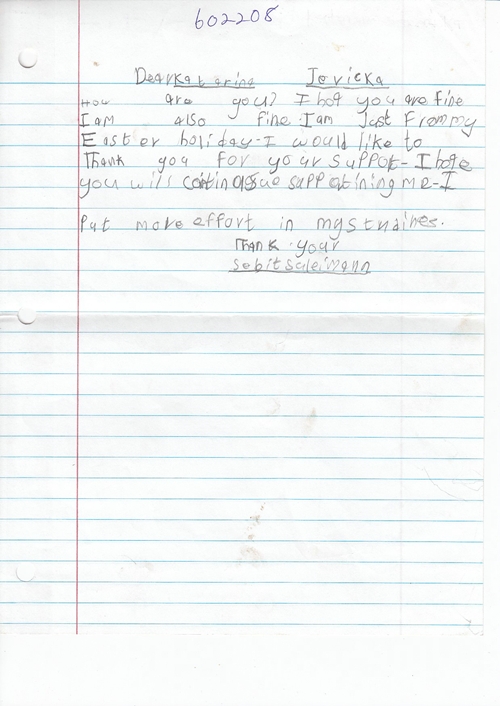 602208
Dear Katarina Jovicka
How are you? I hop you are fine
I am also fine. I am Just From my
Easter holiday - I would like to
Thank you For your support - I hope
you will continue supportining me - I
Put more effort in my studines.
Thank your
Sebit Suleimann